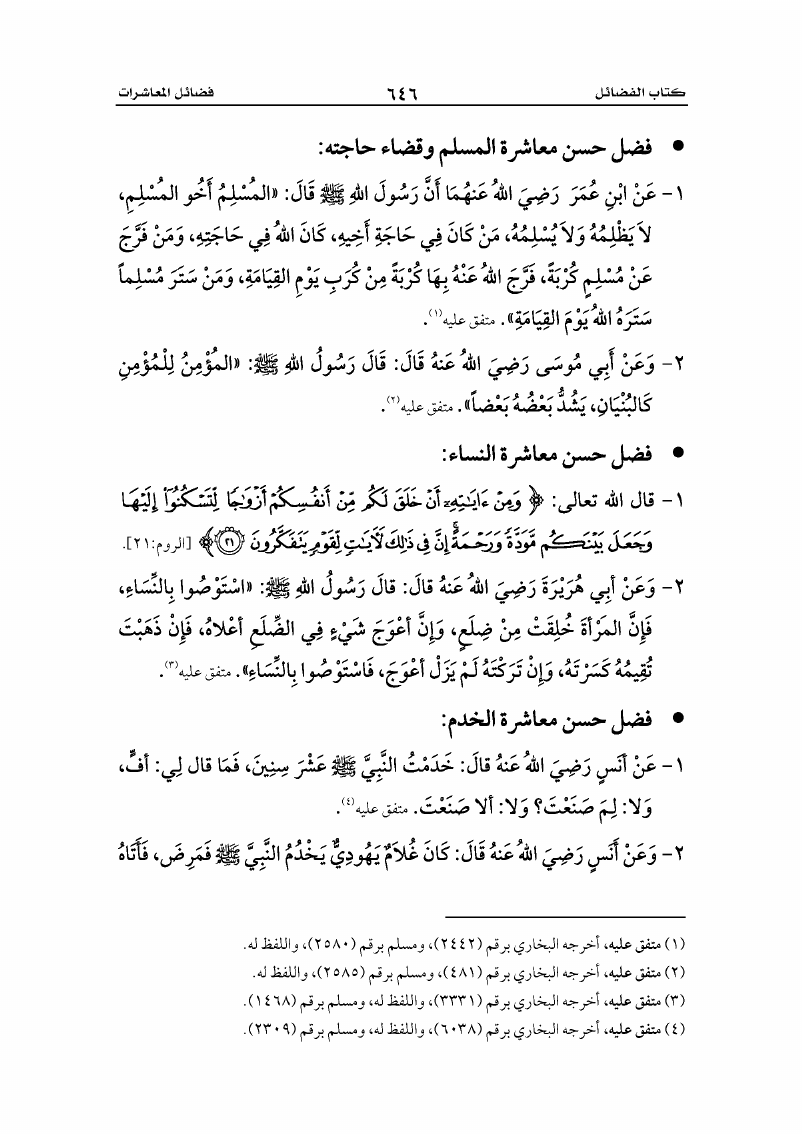 كتاب الفضائل ٦٤٦ فضائل المعاشرات
• فضل حسن معاشرة المسلم وقضاء حاجته:
١- عَنْ ابْنِ عُمَرَ رَضِيَ اللهُ عَنهُمَا أَنَّ رَسُولَ اللهِ ﷺ قَالَ: «المُسْلِمُ أَخُو المُسْلِمِ،
لاَ يَظْلِمُهُ وَلاَ يُسْلِمُهُ، مَنْ كَانَ فِي حَاجَةِ أَخِيهِ، كَانَ اللهُ فِي حَاجَتِهِ، وَمَنْ فَرَّجَ
عَنْ مُسْلِمٍ كُرْبَةً، فَرَّجَ اللهُ عَنْهُ بِهَا كُرْبَةً مِنْ كُرَبِ يَوْمِ القِيَامَةِ، وَمَنْ سَتَرَ مُسْلِماً
سَتَرَهُ اللهُ يَوْمَ القِيَامَةِ». متفق عليه(١).
٢- وَعَنْ أَبِي مُوسَى رَضِيَ اللهُ عَنهُ قَالَ: قَالَ رَسُولُ اللهِ ﷺ: «المُؤْمِنُ لِلْمُؤْمِنِ
كَالبُنْيَانِ، يَشُدُّ بَعْضُهُ بَعْضاً». متفق عليه(٢).
• فضل حسن معاشرة النساء:
١- قال الله تعالى: ﴿ وَمِنْ ءَايَٰتِهِۦٓ أَنْ خَلَقَ لَكُم مِّنْ أَنفُسِكُمْ أَزْوَٰجًا لِّتَسْكُنُوٓا۟ إِلَيْهَا
وَجَعَلَ بَيْنَكُم مَّوَدَّةً وَرَحْمَةً ۚ إِنَّ فِى ذَٰلِكَ لَءَايَٰتٍ لِّقَوْمٍ يَتَفَكَّرُونَ ٢١ ﴾ [الروم:٢١].
٢- وَعَنْ أبِي هُرَيْرَةَ رَضِيَ اللهُ عَنهُ قالَ: قالَ رَسُولُ اللهِ ﷺ: «اسْتَوْصُوا بِالنِّسَاءِ،
فَإِنَّ المَرْأةَ خُلِقَتْ مِنْ ضِلَعٍ، وَإِنَّ أعْوَجَ شَيْءٍ فِي الضِّلَعِ أعْلاهُ، فَإِنْ ذَهَبْتَ
تُقِيمُهُ كَسَرْتَهُ، وَإِنْ تَرَكْتَهُ لَمْ يَزَلْ أعْوَجَ، فَاسْتَوْصُوا بِالنِّسَاءِ». متفق عليه(٣).
• فضل حسن معاشرة الخدم:
١- عَنْ أنَسٍ رَضِيَ اللهُ عَنهُ قالَ: خَدَمْتُ النَّبِيَّ ﷺ عَشْرَ سِنِينَ، فَمَا قال لِي: أفٍّ،
وَلا: لِمَ صَنَعْتَ؟ وَلا: ألا صَنَعْتَ. متفق عليه(٤).
٢- وَعَنْ أَنَسٍ رَضِيَ اللهُ عَنهُ قَالَ: كَانَ غُلاَمٌ يَهُودِيٌّ يَخْدُمُ النَّبِيَّ ﷺ فَمَرِضَ، فَأَتَاهُ
(١) متفق عليه، أخرجه البخاري برقم (٢٤٤٢)، ومسلم برقم (٢٥٨٠)، واللفظ له.
(٢) متفق عليه، أخرجه البخاري برقم (٤٨١)، ومسلم برقم (٢٥٨٥)، واللفظ له.
(٣) متفق عليه، أخرجه البخاري برقم (٣٣٣١)، واللفظ له، ومسلم برقم (١٤٦٨).
(٤) متفق عليه، أخرجه البخاري برقم (٦٠٣٨)، واللفظ له، ومسلم برقم (٢٣٠٩).